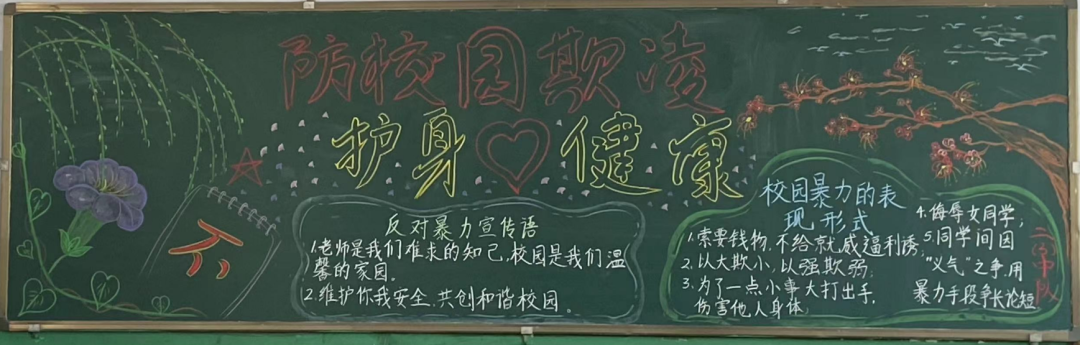 防校园欺凌
护身健康
不
反对暴力宣传语
1.老师是我们难求的知己,校园是我们温
馨的家园。
2.维护你我安全,共创和谐校园。
校园暴力的表
现形式
1.索要钱物,不给就威逼利诱;
2.以大欺小,以强欺弱;
3.为了一点小事大打出手,
伤害他人身体;
4.侮辱女同学;
5.同学间因
"义气"之争,用
暴力手段争长论短
中队